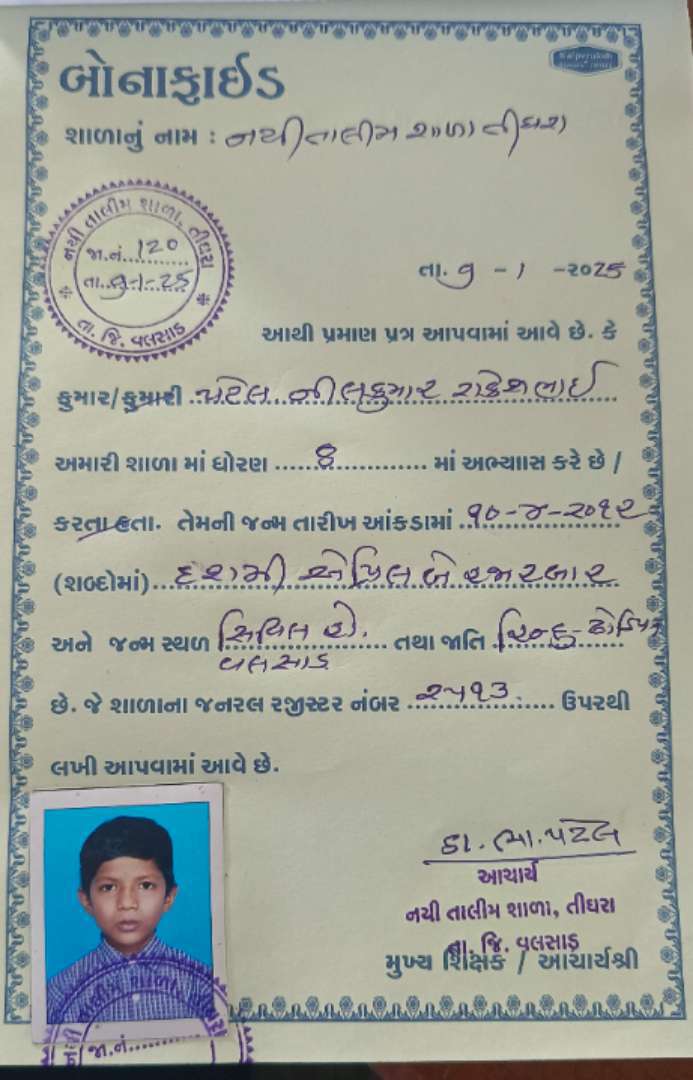 બોનાફાઈડ
શાળાનું નામ : નયી તાલીમ શાળા તીઘરા
નયી તાલીમ શાળા, તીઘરા
જા.નં. 120
તા. 9-1-25
તા. જિ. વલસાડ
તા. 9 - 1 -2025
આથી પ્રમાણ પત્ર આપવામાં આવે છે. કે
કુમાર/કુમારી પટેલ નીલકુમાર રાકેશભાઈ
અમારી શાળા માં ધોરણ 8 માં અભ્યાાસ કરે છે /
કરતા હતા. તેમની જન્મ તારીખ આંકડામાં ૧૦-૪-૨૦૧૨
(શબ્દોમાં) દશમી એપ્રિલ બે હજારબાર
અને જન્મ સ્થળ સિવિલ હો. તથા જાતિ હિન્દુ-ઢોડિયા
વલસાડ
છે. જે શાળાના જનરલ રજીસ્ટર નંબર ૨૫૧૩ ઉપરથી
લખી આપવામાં આવે છે.
ડા. ભા. પટેલ
આચાર્ય
નયી તાલીમ શાળા, તીઘરા
તા. જિ. વલસાડ
મુખ્ય શિક્ષક / આચાર્યશ્રી
નયી તાલીમ શાળા, તીઘરા
જા.નં.